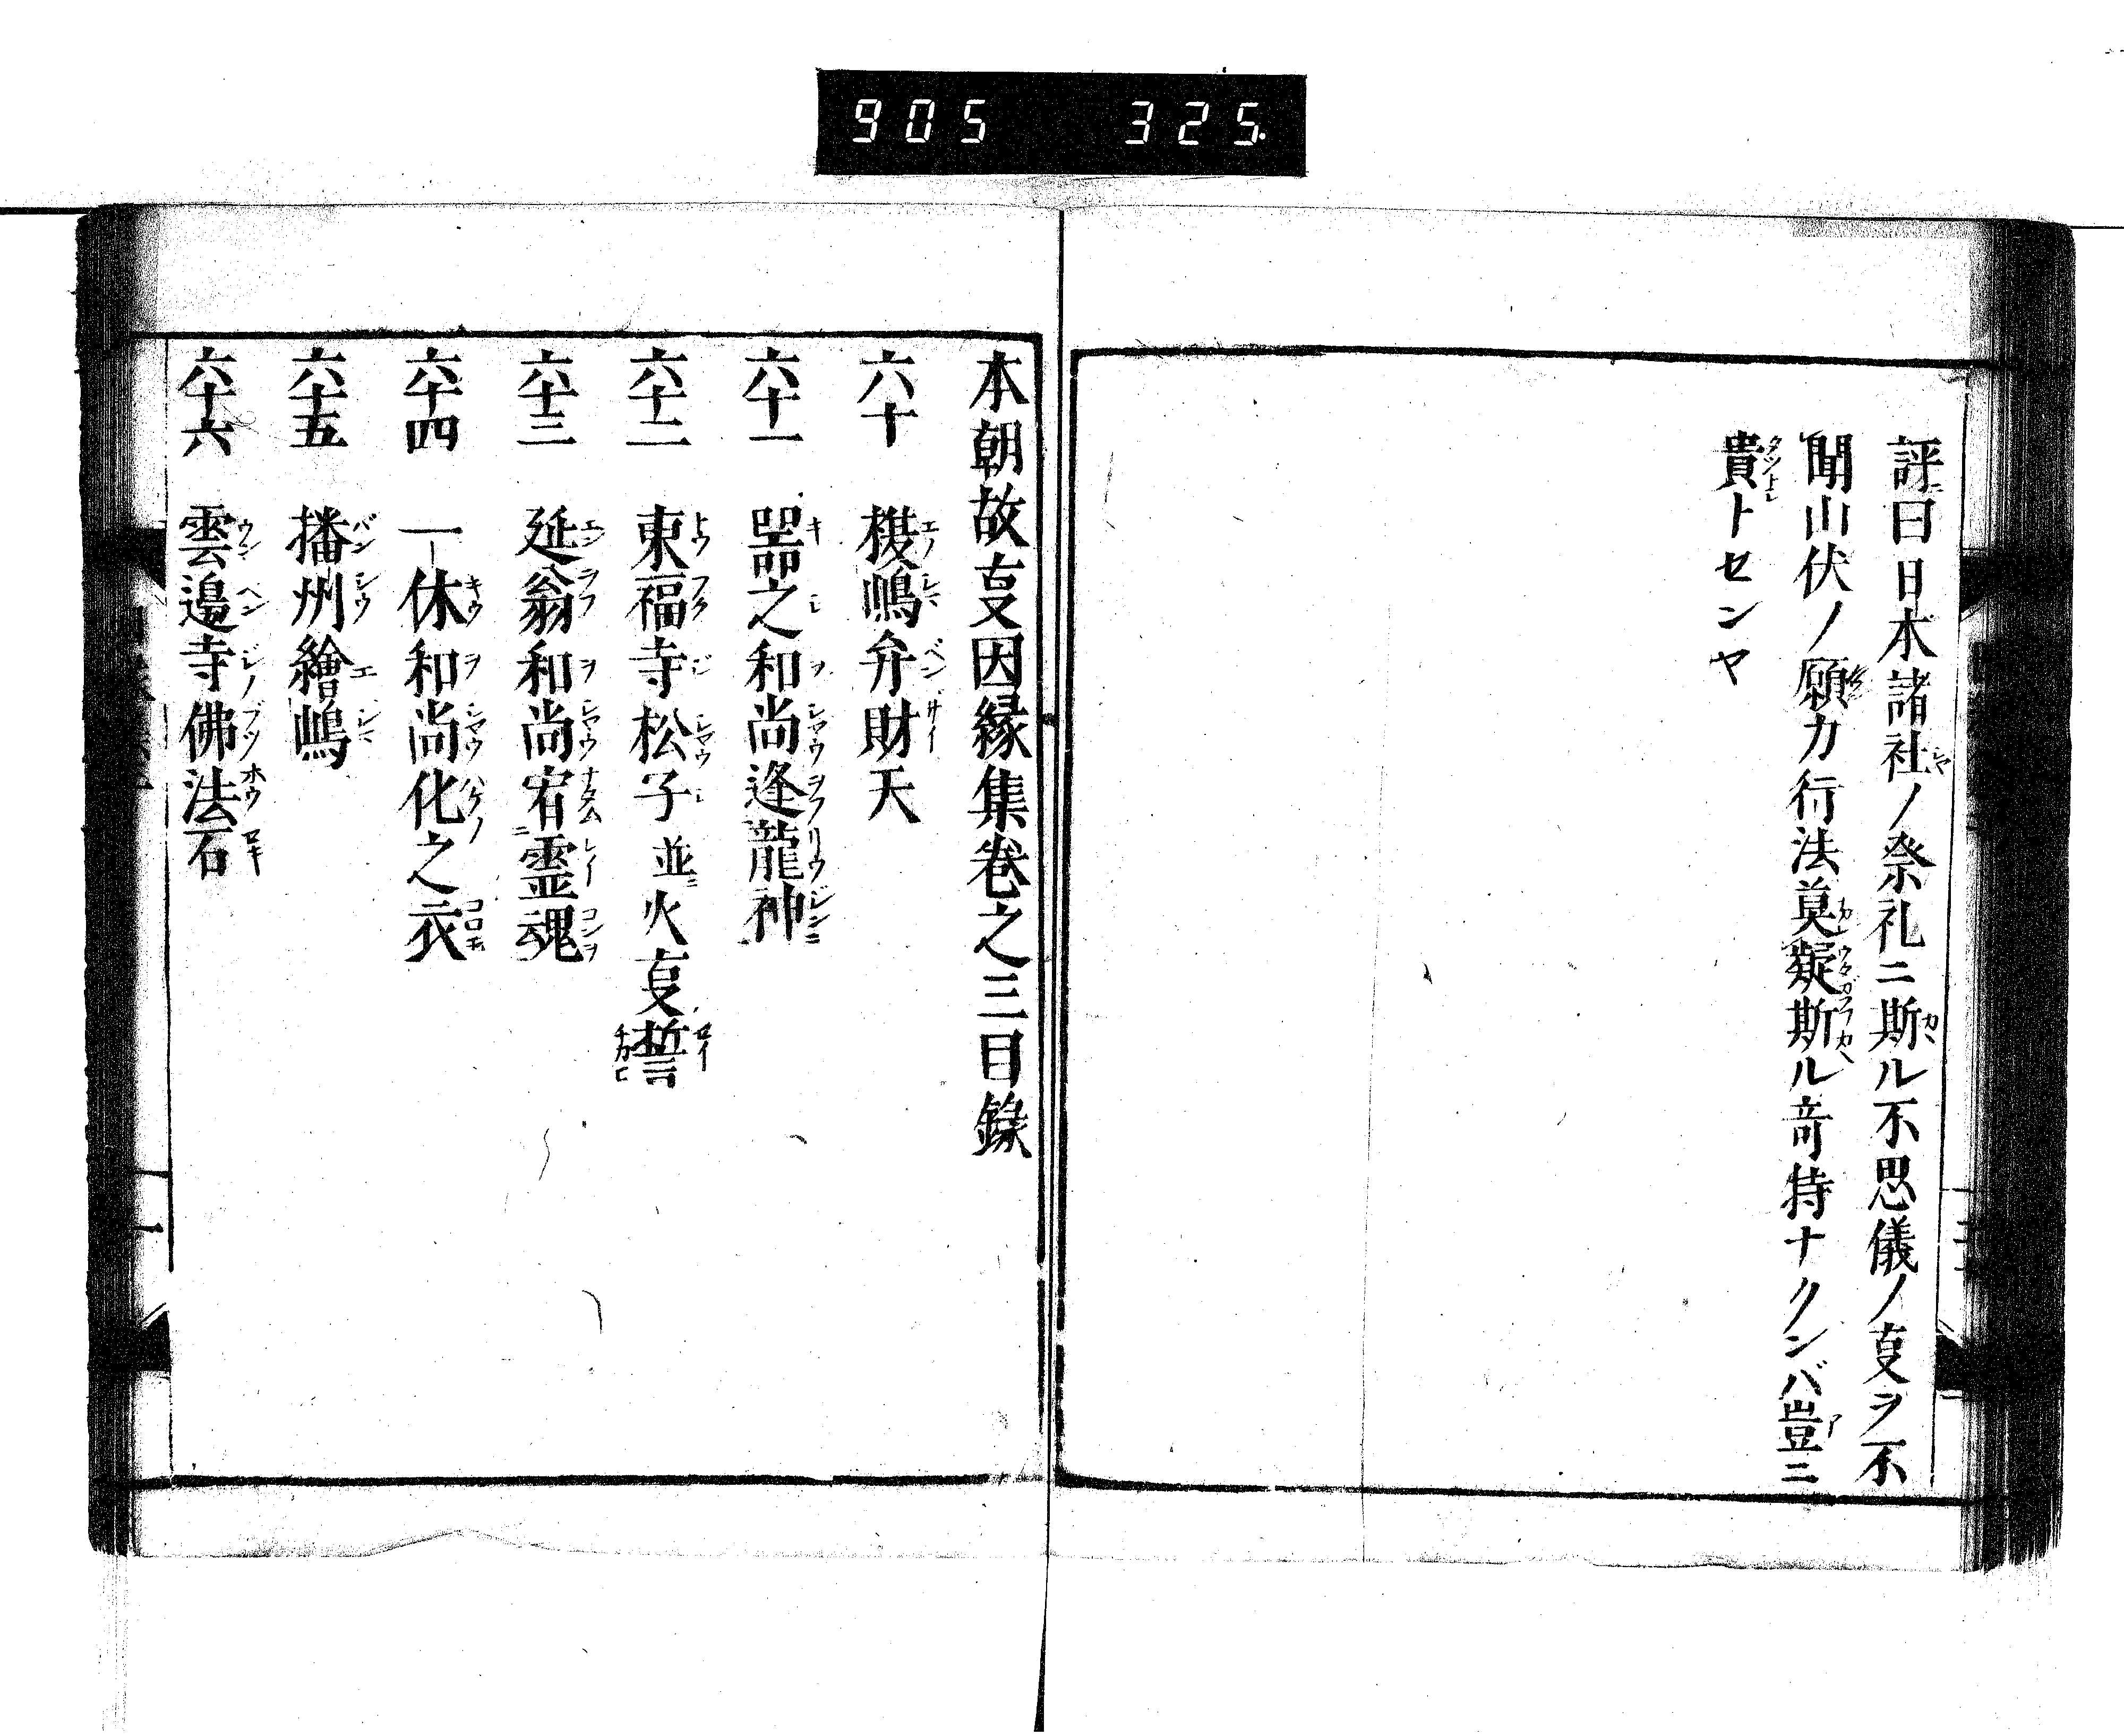 905 325
評曰日本諸社ノ祭礼ニ斯ル不思儀ノ㕝ヲ不
聞山伏ノ願力行法莫疑斯ル竒特ナクンバ豈ニ
貴トセンヤ
本朝故㕝因縁集巻之三目錄
六十 榎嶋弁財天
六十一 噐之和尚逢龍神
六十二 東福寺松子並火㕝誓
六十三 延翁和尚宥霊魂
六十四 一休和尚化之衣
六十五 播州繪嶋
六十六 雲邉寺佛法石